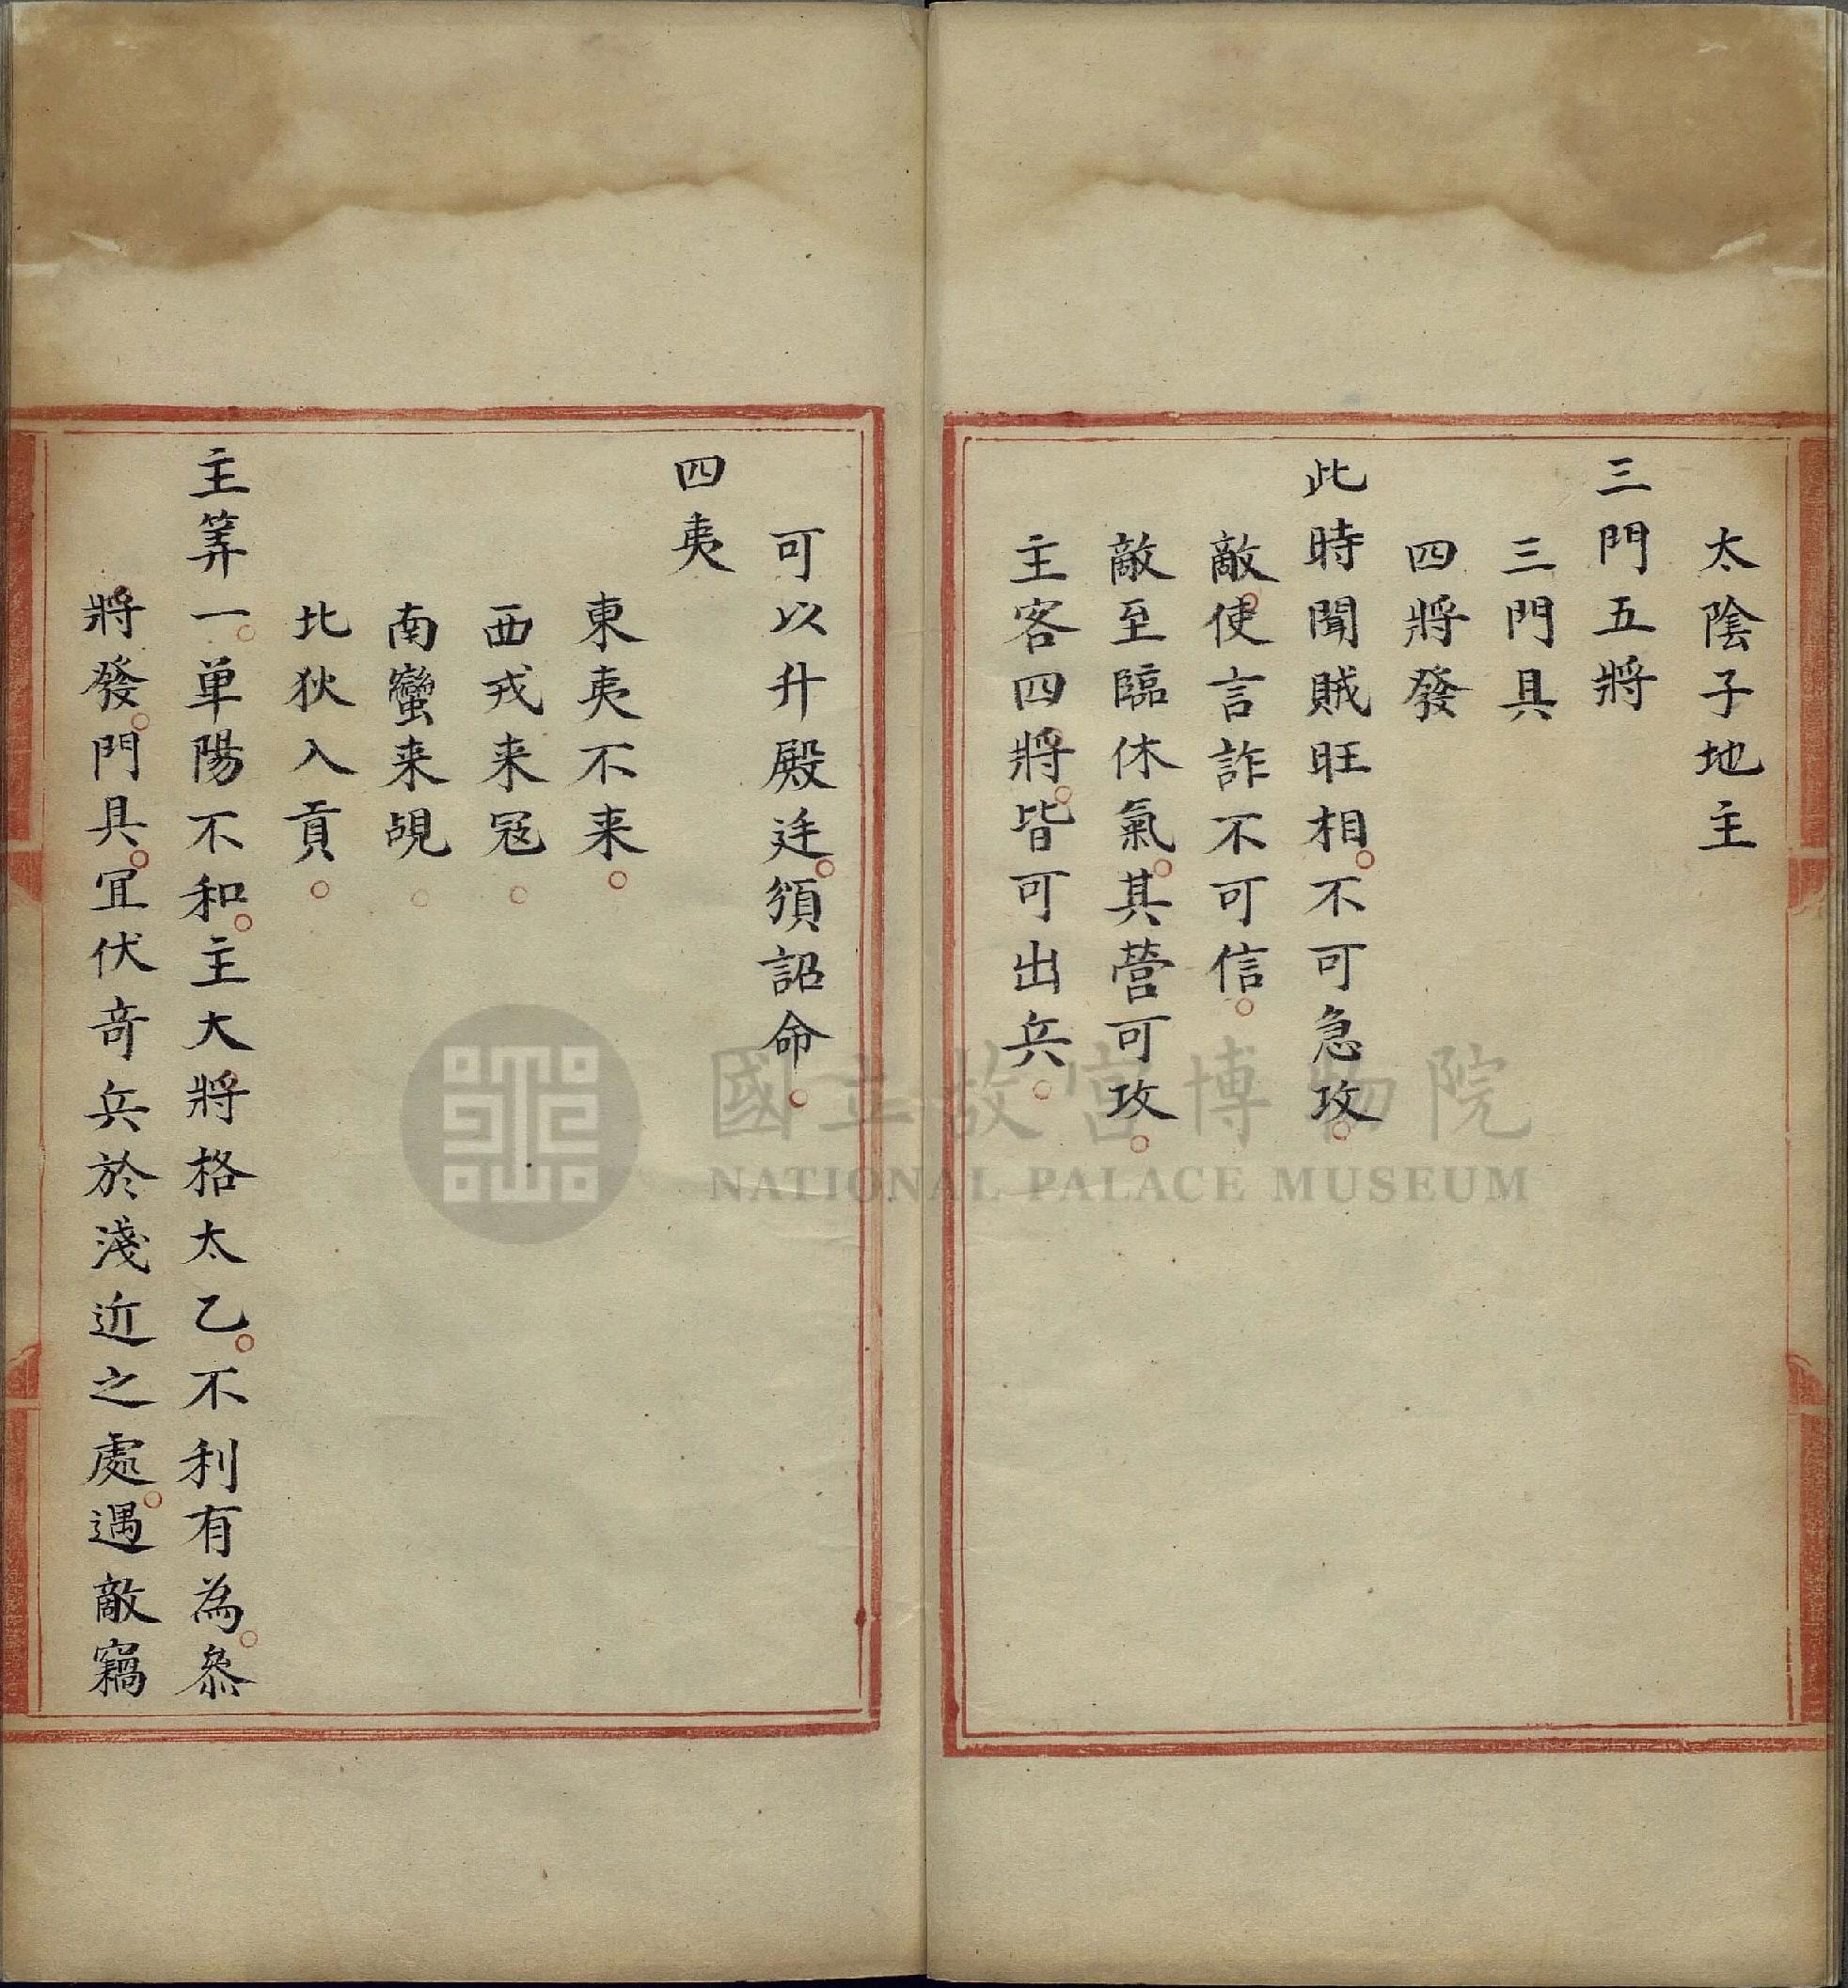 太陰子地主
三門五將
三門具
四將發
此時聞賊旺相。不可急攻。
敵使言詐不可信。
敵至臨休氣。其營可攻。
主客四將。皆可出兵。
可以升殿廷。頒詔命。
四夷
東夷不来。
西戎来冦。
南蠻来覘。
北狄入貢。
主筭一。单陽不和。主大將格太乙。不利有為。叅
將發。門具。冝伏奇兵於淺近之處。遇敵竊
國立故宮博物院
NATIONAL PALACE MUSEUM